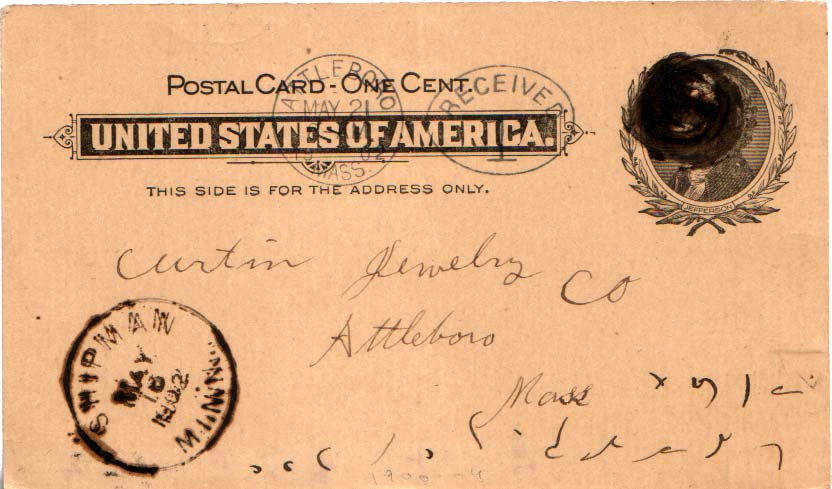 POSTAL CARD - ONE CENT.
UNITED STATES OF AMERICA.
THIS SIDE IS FOR THE ADDRESS ONLY.
ATTLEBORO
MAY 21
MASS.
RECEIVED
1
JEFFERSON
Curtin Jewelry Co
Attleboro
Mass
SHIPMAN
MAY
18
1902
MINN
1900-04